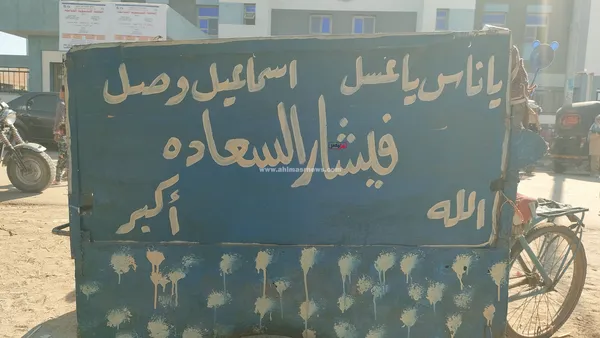 يا ناس يا عسل اسماعيل وصل
فيشار السعاده
الله أكبر
www.ahlmasrnews.com